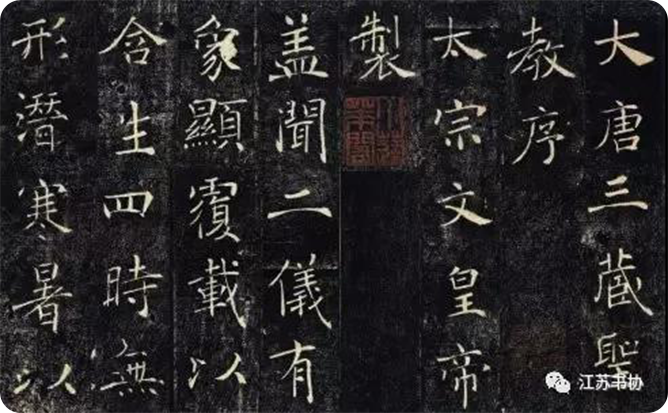 大唐三藏聖
教序
太宗文皇帝
製
盖聞二儀有
象顯覆載以
含生四時無
形潛寒暑以
江苏书协